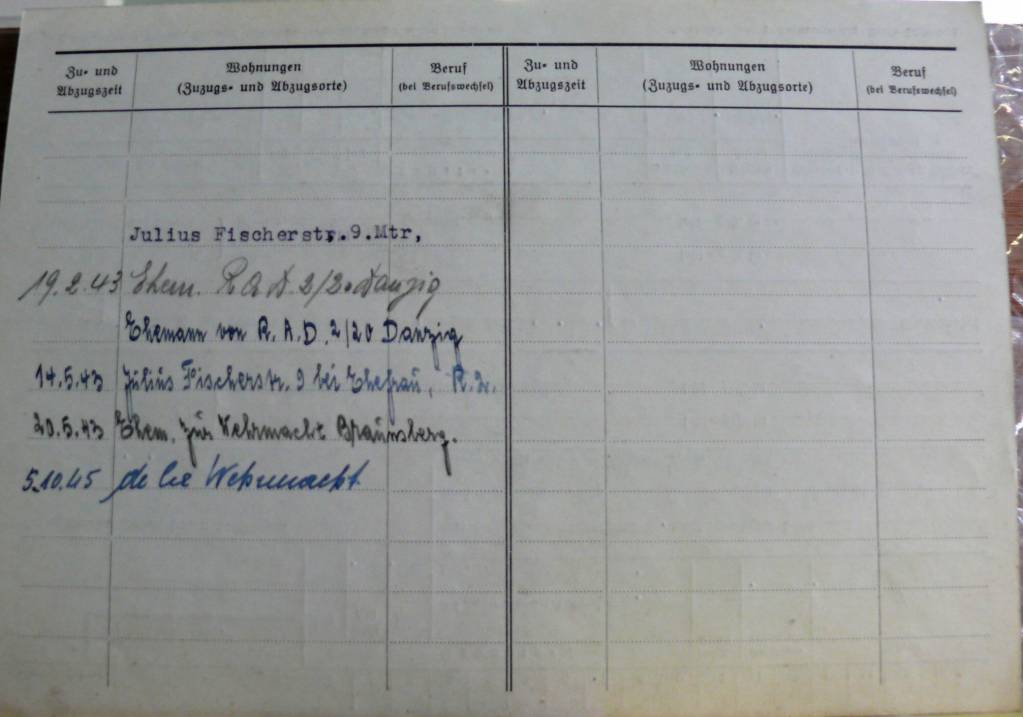 Zu- und Abzugszeit
Wohnungen
(Zuzugs- und Abzugsorte)
Beruf
(bei Berufswechsel)
Zu- und Abzugszeit
Wohnungen
(Zuzugs- und Abzugsorte)
Beruf
(bei Berufswechsel)
Julius Fischerstr.9.Mtr,
19.2.43 Ehem. R A D. 2/20 Danzig
Ehemann von R.A.D. 2/20 Danzig
14.5.43 Julius Fischerstr. 9 bei Ehefrau,
20.5.43 Ehem. zur Wehrmacht Braunsberg.
5.10.45 Wehrmacht